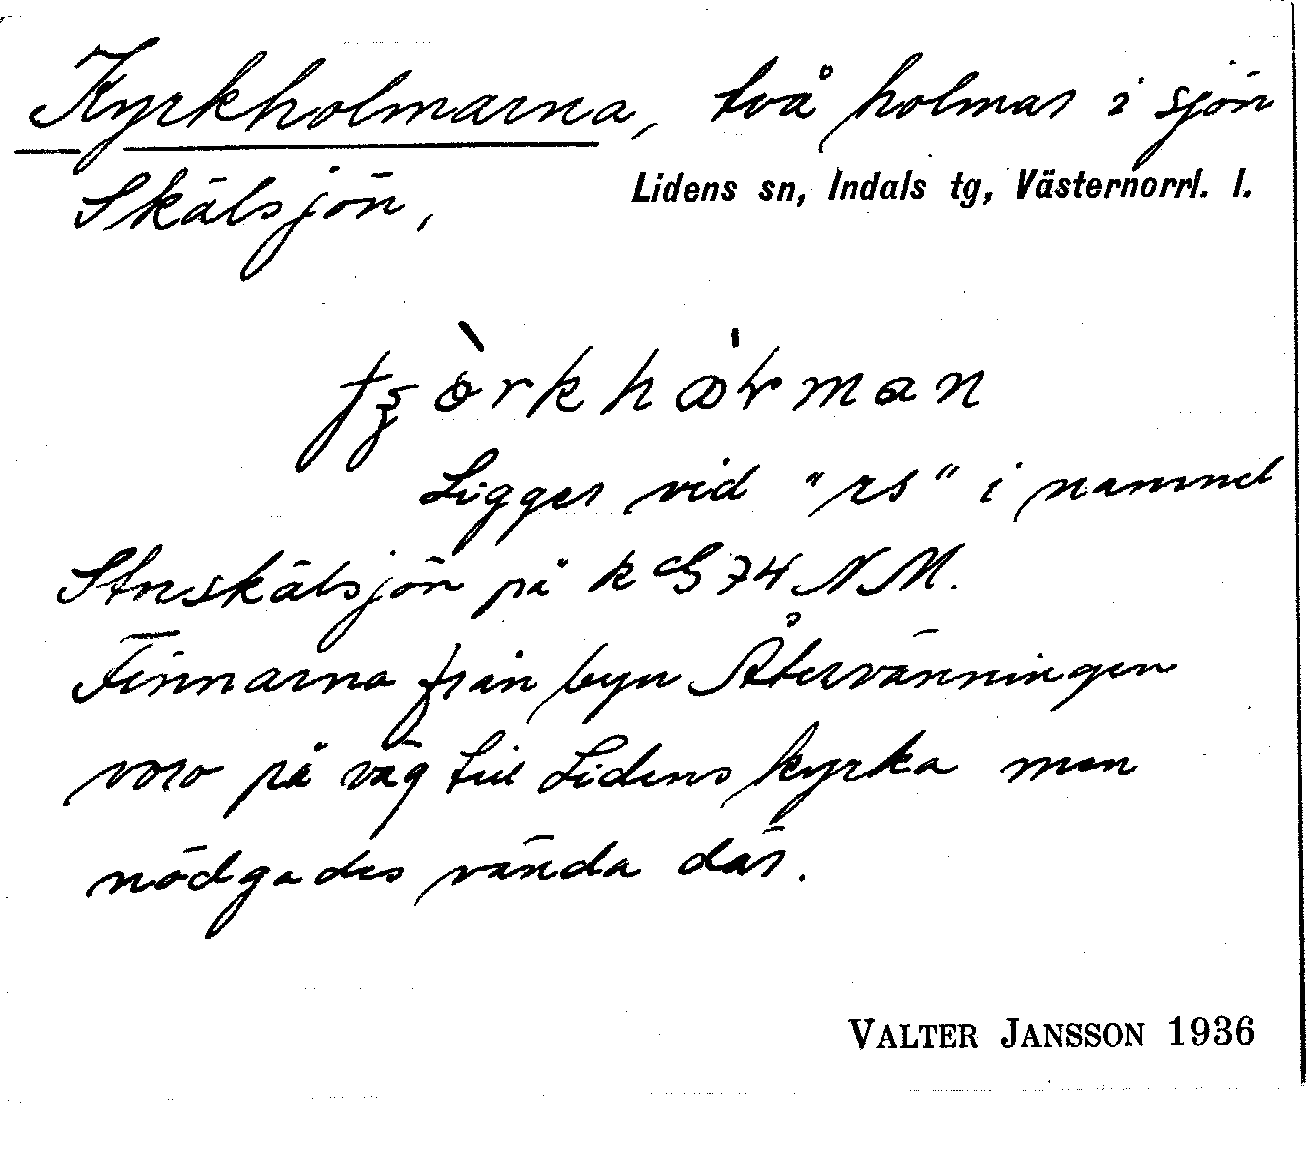 Kyrkholmarna, två holmar i sjön
Skälsjön,
Lidens sn, Indals tg, Västernorrl. l.
Ligger vid "rs" i namnet
St­nskälsjön på k G 74 N M.
Finnarna från byn Återvänningen
voro på väg till Lidens kyrka men
nödgades vända där.
VALTER JANSSON 1936